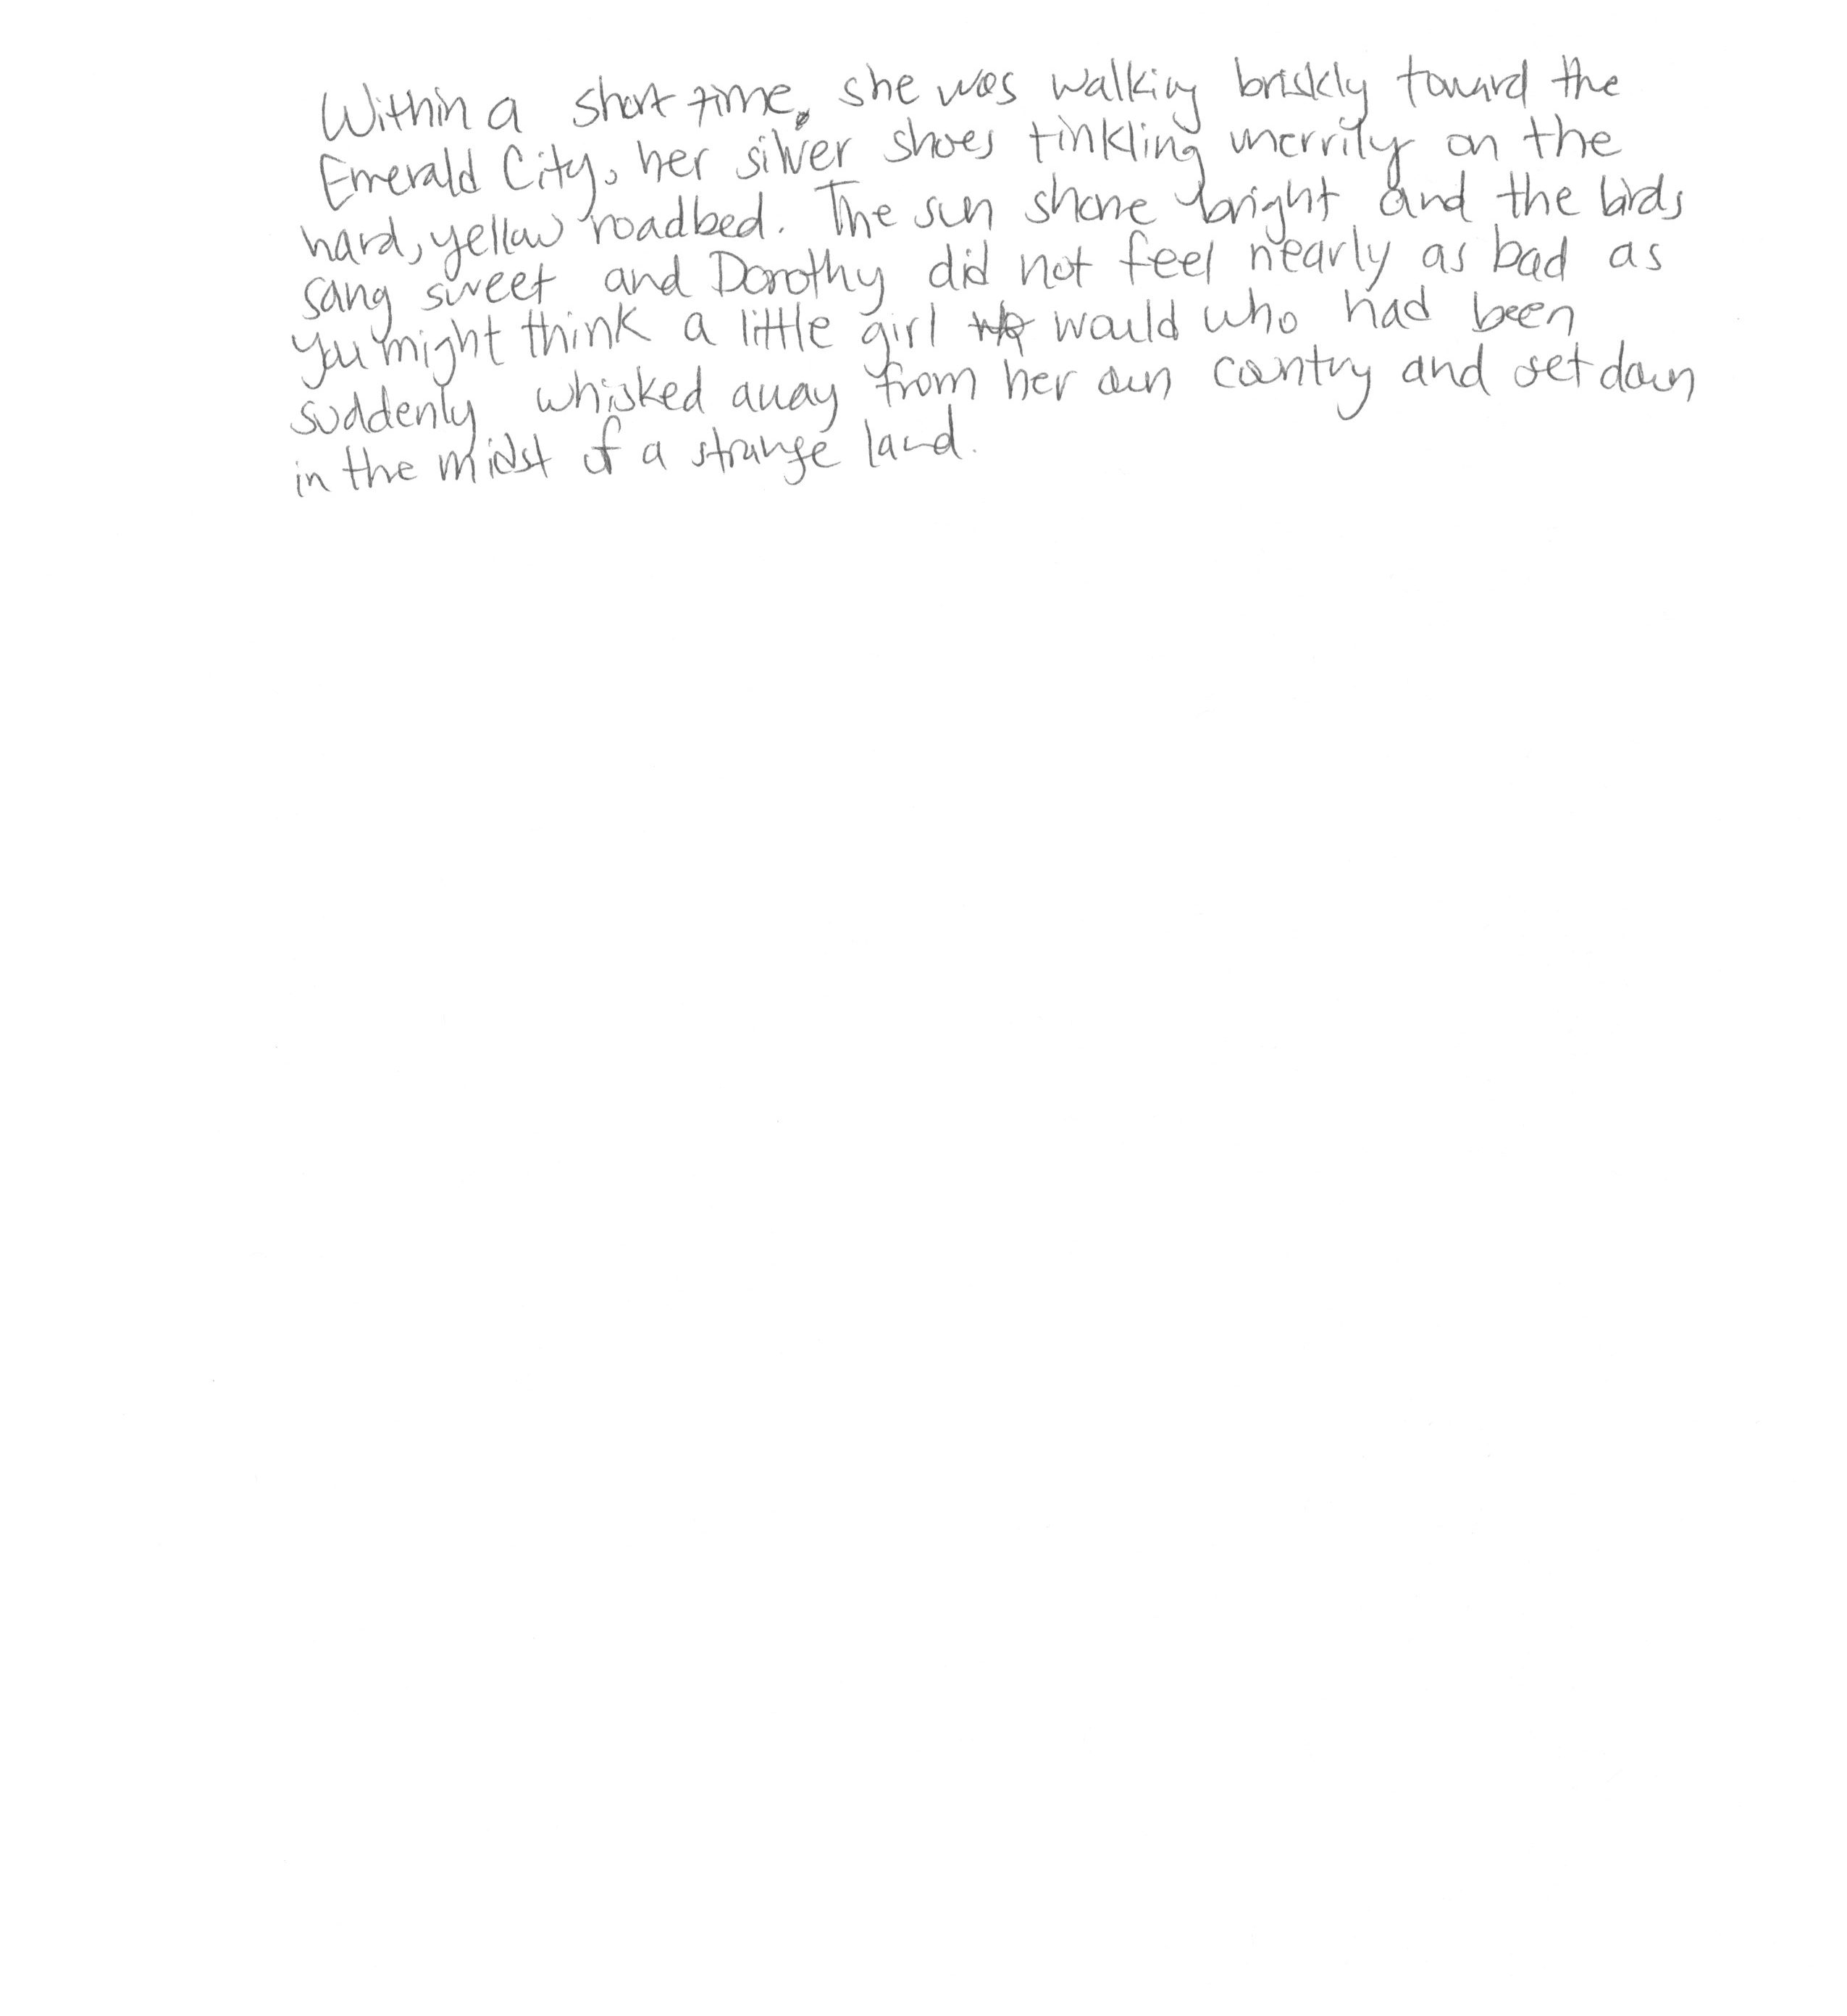 Within a short time, she was walking briskly toward the
Emerald City, her silver shoes tinkling merrily on the
hard, yellow roadbed. The sun shone bright and the birds
sang sweet and Dorothy did not feel nearly as bad as
you might think a little girl would who had been
suddenly whisked away from her own country and set down
in the midst of a strange land.